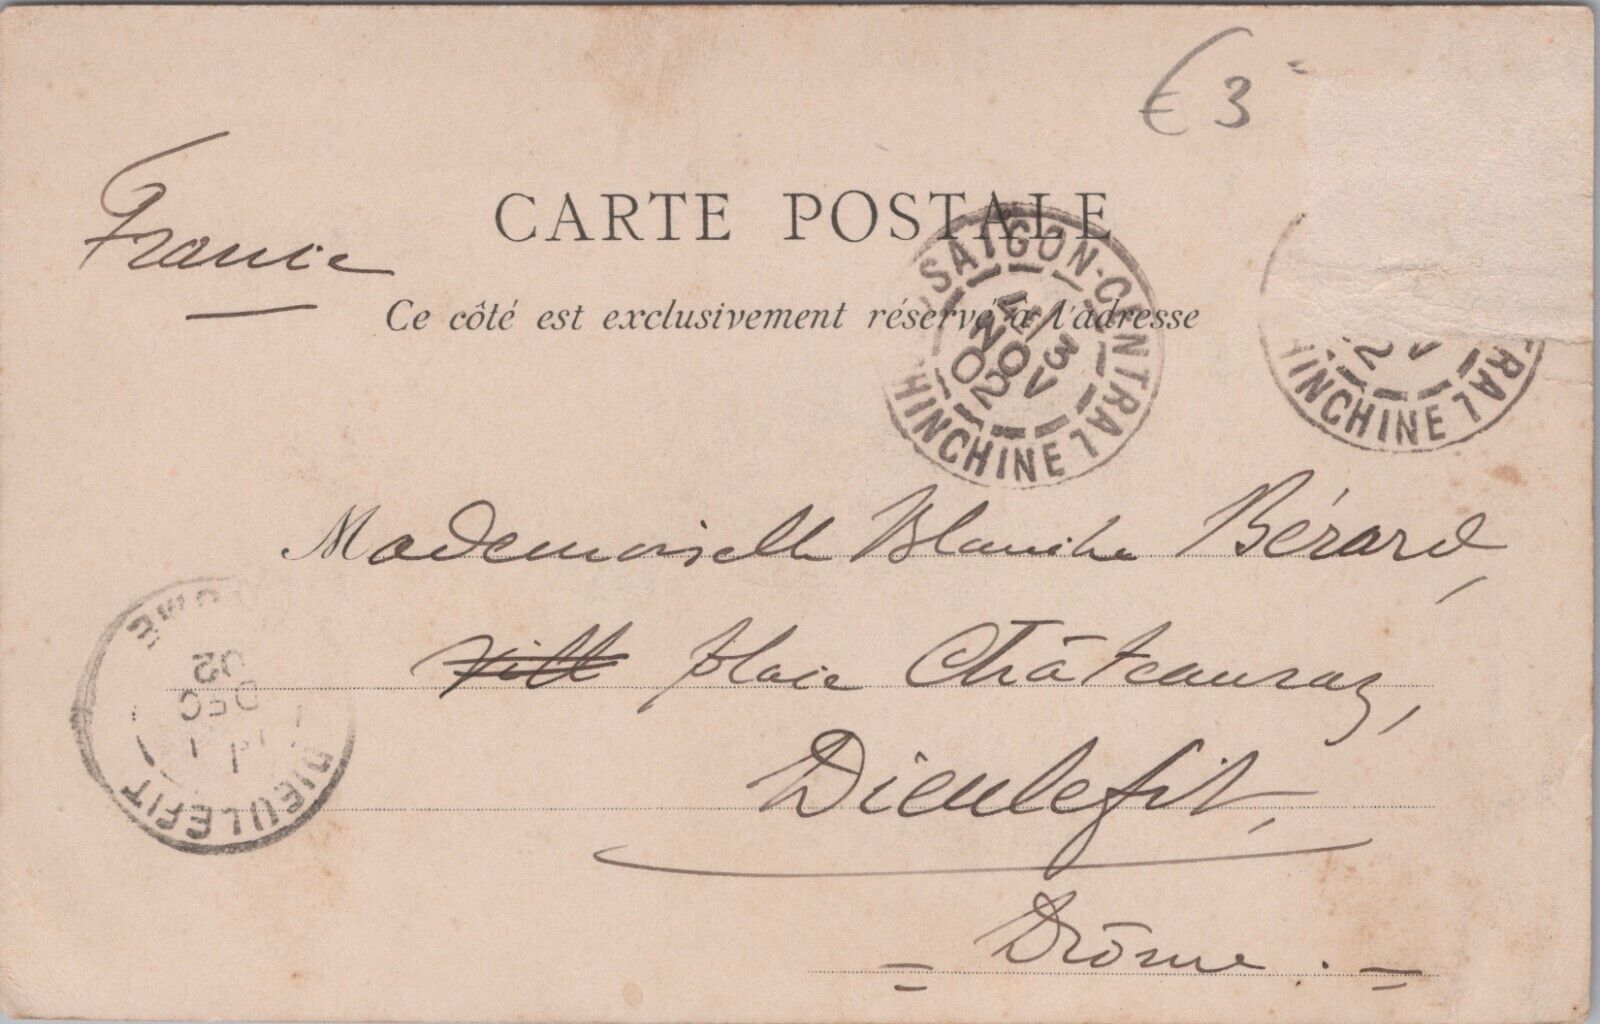 € 3
France
CARTE POSTALE
Ce côté est exclusivement réservé à l'adresse
SAIGON-CENTRAL
3
NOV
02
HINCHINE
RAL
HINCHINE
Mademoiselle Blanche Bérard,
place Châteauras,
Dieulefit,
Drôme.
DIEULEFIT
DEC
02